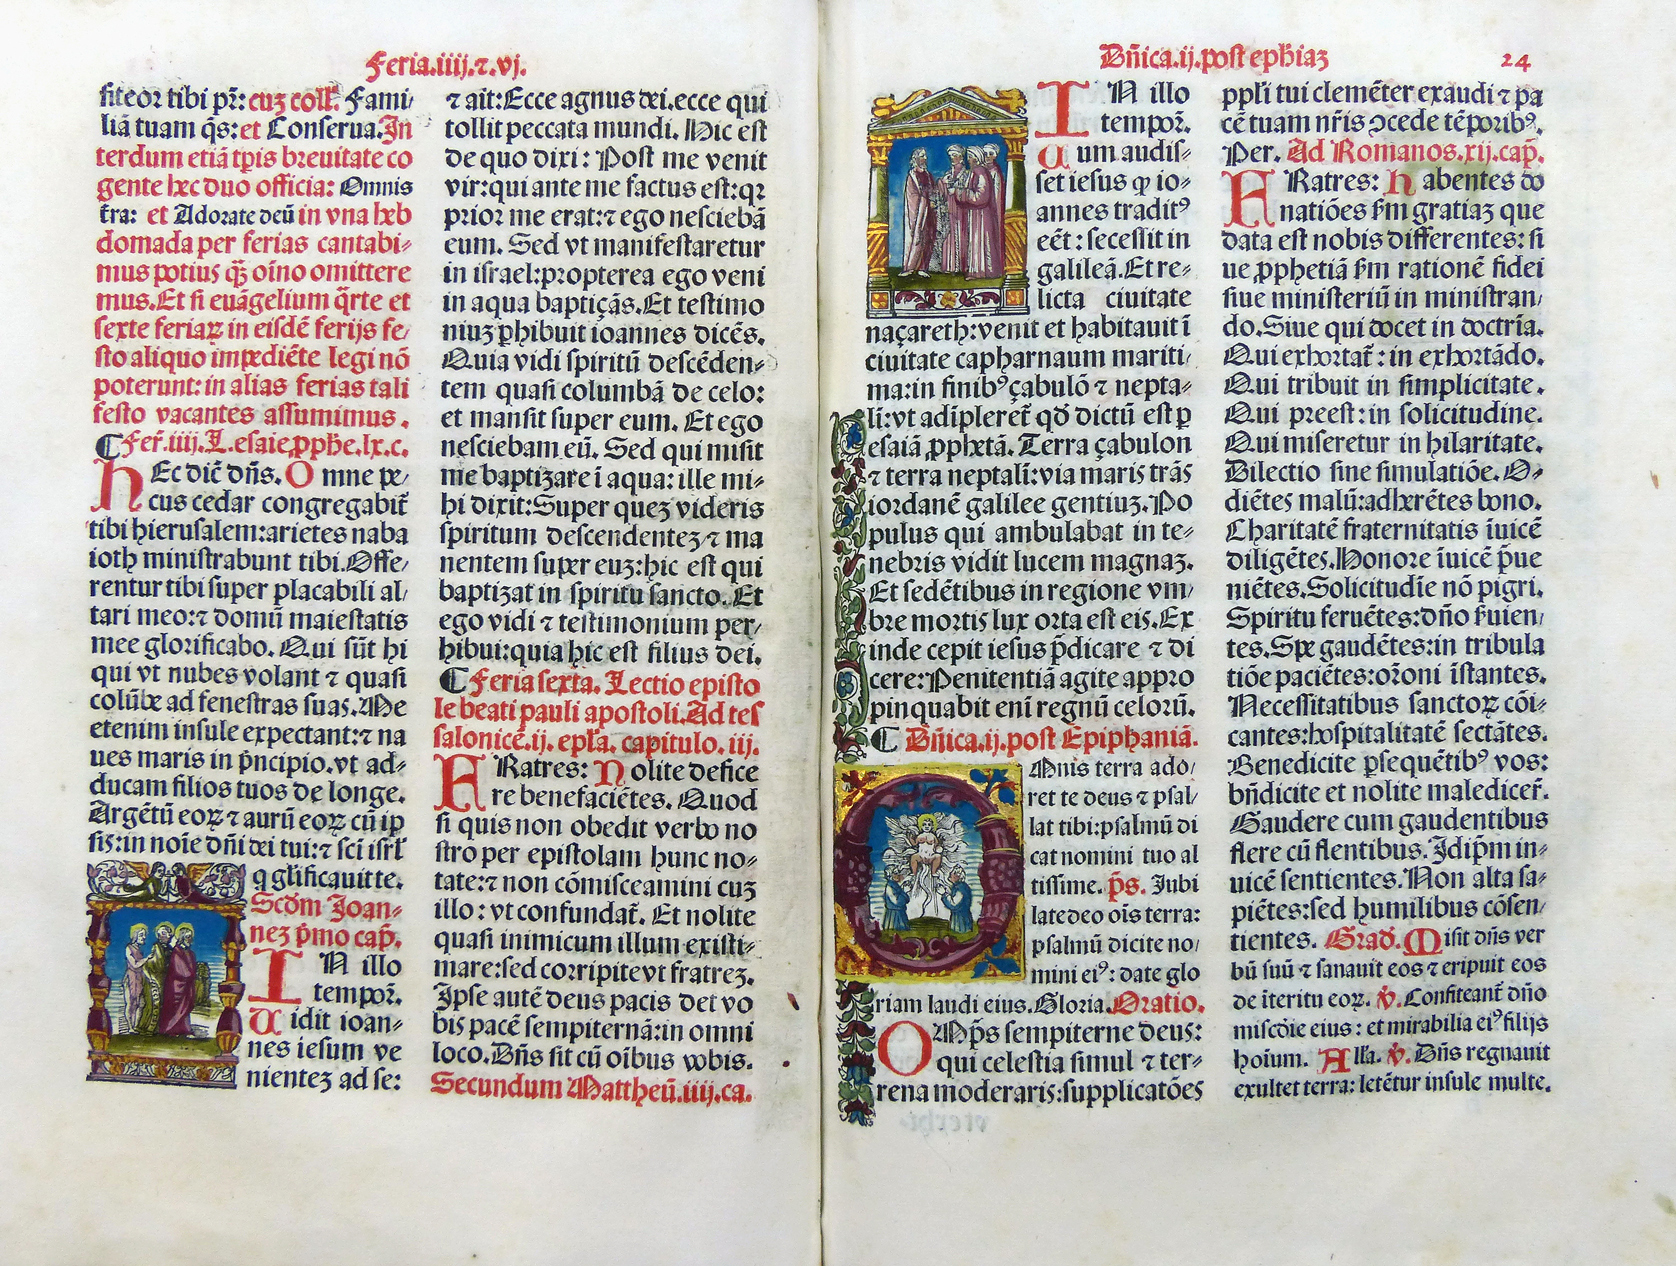 Feria.iiij.⁊.vj.
fiteor tibi pr̄: cuꝫ coll̄. Fami/
liā tuam q̄s: et Conserua. In
terdum etiā tp̄is breuitate co
gente hec duo officia: Omnis
t̄ra: et Adorate deū in vna heb
domada per ferias cantabi⸗
mus potius qꝫ̄ oīno omittere
mus. Et si euāgelium q̄rte et
sexte feriaꝝ in eisdē ferijs fe/
sto aliquo impediēte legi nō
poterunt: in alias ferias tali
festo vacantes assumimus.
¶ Fer̄.iiij. L. esaie ꝓph̄e.lx.c.
HEc dic̄ dn̄s. Omne pe/
cus cedar congregabit̄
tibi hierusalem: arietes naba
ioth ministrabunt tibi. Offe/
rentur tibi super placabili al/
tari meo: ⁊ domū maiestatis
mee glorificabo. Qui sūt hi
qui vt nubes volant ⁊ quasi
colūbe ad fenestras suas. Me
etenim insule expectant: ⁊ na
ues maris in p̄ncipio. vt ad⸗
ducam filios tuos de longe.
Argētū eoꝝ ⁊ aurū eoꝝ cū ip̄
sis: in noīe dn̄i dei tui: ⁊ scī isrl̄
q gl̄ificauit te.
Scd̄m Joan⸗
neꝫ p̄mo cap̄.
IN illo
tempoꝛ̄.
Uidit ioan⸗
nes iesum ve
nienteꝫ ad se:
⁊ ait: Ecce agnus dei. ecce qui
tollit peccata mundi. Hic est
de quo dixi: Post me venit
vir: qui ante me factus est: qꝛ
prior me erat: ⁊ ego nesciebā
eum. Sed vt manifestaretur
in israel: propterea ego veni
in aqua baptiçās. Et testimo
niuꝫ ꝑhibuit ioannes dicēs.
Quia vidi spiritū descēden⸗
tem quasi columbā de celo:
et mansit super eum. Et ego
nesciebam eū. Sed qui misit
me baptizare ī aqua: ille mi⸗
hi dixit: Super queꝫ videris
spiritum descendenteꝫ ⁊ ma
nentem super euꝫ: hic est qui
baptizat in spiritu sancto. Et
ego vidi ⁊ testimonium per/
hibui: quia hic est filius dei.
¶ Feria sexta. Lectio episto
le beati pauli apostoli. Ad tes
salonicē.ij. epl̄a. capitulo. iij.
FRatres: Nolite defice
re benefaciētes. Quod
si quis non obedit verbo no
stro per epistolam hunc no⸗
tate: ⁊ non cōmisceamini cuꝫ
illo: vt confundat̄. Et nolite
quasi inimicum illum existi⸗
mare: sed corripite vt fratreꝫ.
Ipse autē deus pacis det vo
bis pacē sempiternā: in omni
loco. Dn̄s sit cū oībus vobis.
Secundum Mattheū.iiij.ca.
Dn̄ica.ij.post eph̄iaꝫ
24
IN illo
tempoꝛ̄.
Cum audis⸗
set iesus ꝙ io⸗
annes traditꝰ
eēt: secessit in
galileā. Et re⸗
licta ciuitate
naçareth: venit et habitauit ī
ciuitate capharnaum mariti/
ma: in finibꝰ çabulō ⁊ nepta⸗
li: vt adīpleret̄ qd̄ dictū est ꝑ
esaiā ꝓphetā. Terra çabulon
⁊ terra neptali: via maris trās
iordanē galilee gentiuꝫ. Po
pulus qui ambulabat in te⸗
nebris vidit lucem magnaꝫ.
Et sedētibus in regione vm/
bre mortis lux orta est eis. Ex
inde cepit iesus p̄dicare ⁊ di
cere: Penitentiā agite appro
pinquabit enī regnū celorū.
¶ Dn̄ica.ij.post Epiphaniā.
OMnis terra ado/
ret te deus ⁊ psal/
lat tibi: psalmū di
cat nomini tuo al
tissime. p̄s. Jubi
late deo oīs terra:
psalmū dicite no/
mini eiꝰ: date glo
riam laudi eius. Gloria. Oratio.
OMp̄s sempiterne deus:
qui celestia simul ⁊ ter⸗
rena moderaris: supplicatōes
ppl̄i tui clemēter exaudi ⁊ pa
cē tuam nr̄is ꝯcede tēporibꝰ.
Per. Ad Romanos.xij.cap̄.
FRatres: Habentes do
natiōes ẜm gratiaꝫ que
data est nobis differentes: si
ue ꝓphetiā ẜm rationē fidei
siue ministeriū in ministran/
do. Siue qui docet in doctrīa.
Qui exhortat̄: in exhortādo.
Qui tribuit in simplicitate.
Qui preest: in solicitudine.
Qui miseretur in hilaritate.
Dilectio sine simulatiōe. O⸗
diētes malū: adherētes bono.
Charitatē fraternitatis īuicē
diligētes. Honore īuicē p̄ue
niētes. Solicitudīe nō pigri.
Spiritu feruētes: dn̄o ẜuien/
tes. Spe gaudētes: in tribula
tiōe paciētes: oꝛoni īstantes.
Necessitatibus sanctoꝝ cōi⸗
cantes: hospitalitatē sectātes.
Benedicite ꝑsequētibꝰ vos:
bn̄dicite et nolite maledicer̄.
Gaudere cum gaudentibus
flere cū flentibus. Idip̄m in⸗
uicē sentientes. Non alta sa⸗
piētes: sed humilibus cōsen/
tientes. Grad̄. Misit dn̄s ver
bū suū ⁊ sanauit eos ⁊ eripuit eos
de īteritu eoꝝ. ℣. Confiteant̄ dn̄o
miscd̄ie eius: et mirabilia eiꝰ filijs
hoīum. All̄a. ℣. Dn̄s regnauit
exultet terra: letētur insule multe.